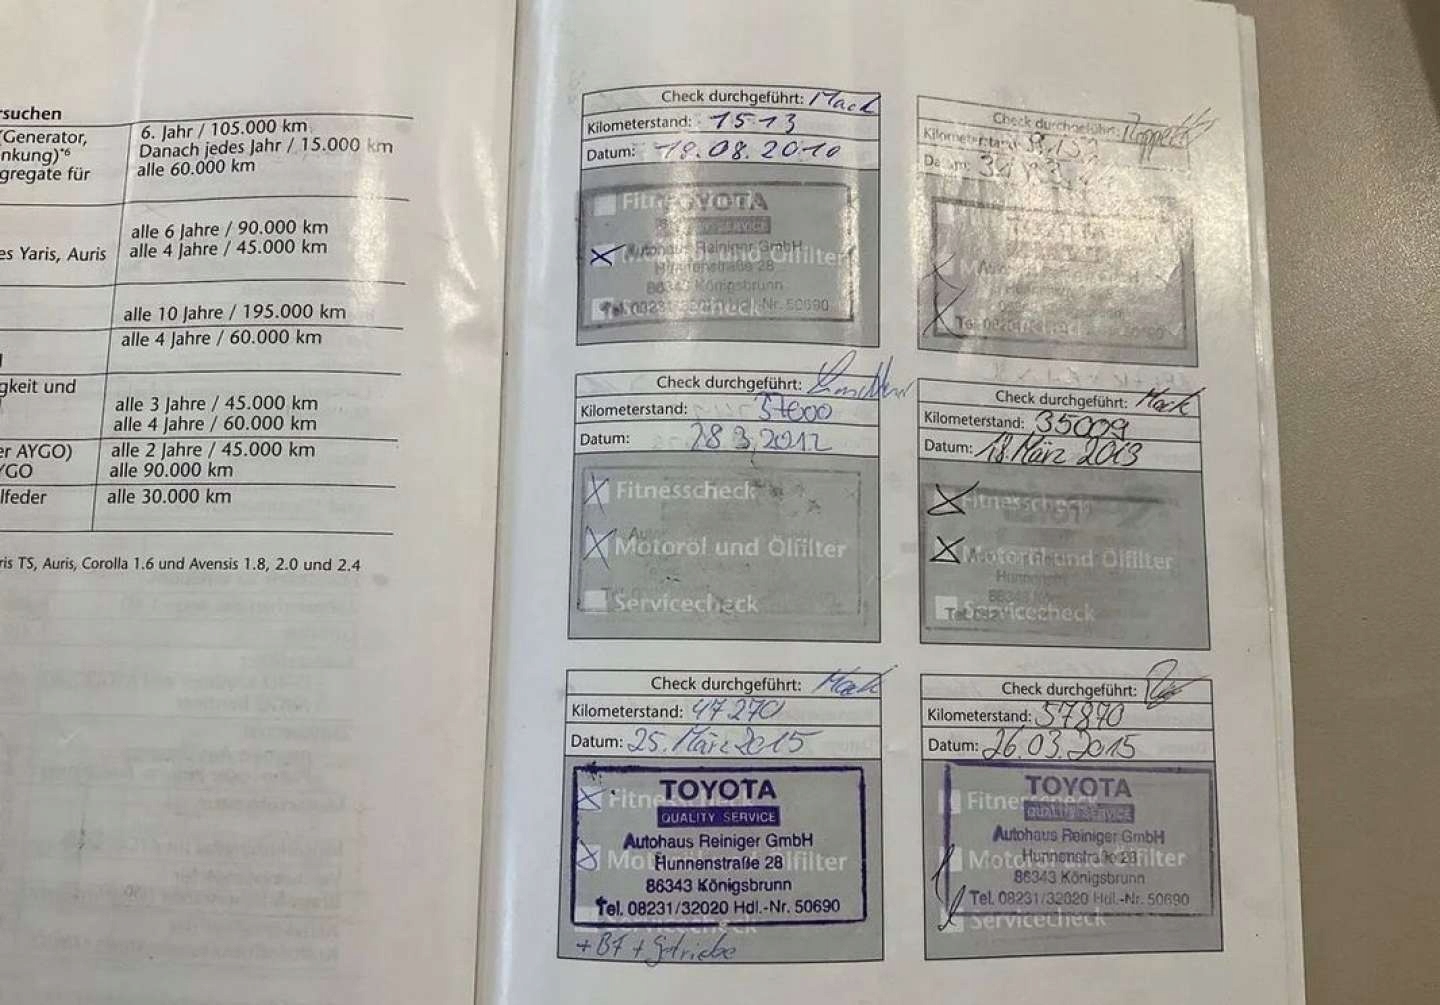 rsuchen
(Generator, 6. Jahr / 105.000 km
nkung)*6 Danach jedes Jahr / 15.000 km
gregate für alle 60.000 km
alle 6 Jahre / 90.000 km
es Yaris, Auris alle 4 Jahre / 45.000 km
alle 10 Jahre / 195.000 km
alle 4 Jahre / 60.000 km
gkeit und
alle 3 Jahre / 45.000 km
alle 4 Jahre / 60.000 km
er AYGO) alle 2 Jahre / 45.000 km
YGO alle 90.000 km
lfeder alle 30.000 km
ris TS, Auris, Corolla 1.6 und Avensis 1.8, 2.0 und 2.4
Check durchgeführt: Mack
Kilometerstand: 1513
Datum: 18.08.2010
Fitn
TOYOTA
QUALITY SERVICE
Autohaus Reiniger GmbH
Motoröl und Ölfilter
Hunnenstraße 28
86343 Königsbrunn
Tel. 08231/32020 Hdl.-Nr. 50690
Servicecheck
Check durchgeführt:
Kilometerstand:
Datum:
TOYOTA
Check durchgeführt:
Kilometerstand: 37000
Datum: 28.3.2012
Fitnesscheck
Motoröl und Ölfilter
Servicecheck
Check durchgeführt: Mack
Kilometerstand: 35009
Datum: 18. März 2013
Fitnesscheck
Motoröl und Ölfilter
Hunnenst
Servicecheck
Check durchgeführt: Mack
Kilometerstand: 47270
Datum: 25. März 2015
Fitnesscheck
TOYOTA
QUALITY SERVICE
Autohaus Reiniger GmbH
Motoröl und Ölfilter
Hunnenstraße 28
86343 Königsbrunn
Tel. 08231/32020 Hdl.-Nr. 50690
Servicecheck
+ BF + Getriebe
Check durchgeführt:
Kilometerstand: 57870
Datum: 26.03.2015
Fitnesscheck
TOYOTA
QUALITY SERVICE
Autohaus Reiniger GmbH
Motoröl und Ölfilter
Hunnenstraße 28
86343 Königsbrunn
Tel. 08231/32020 Hdl.-Nr. 50690
Servicecheck